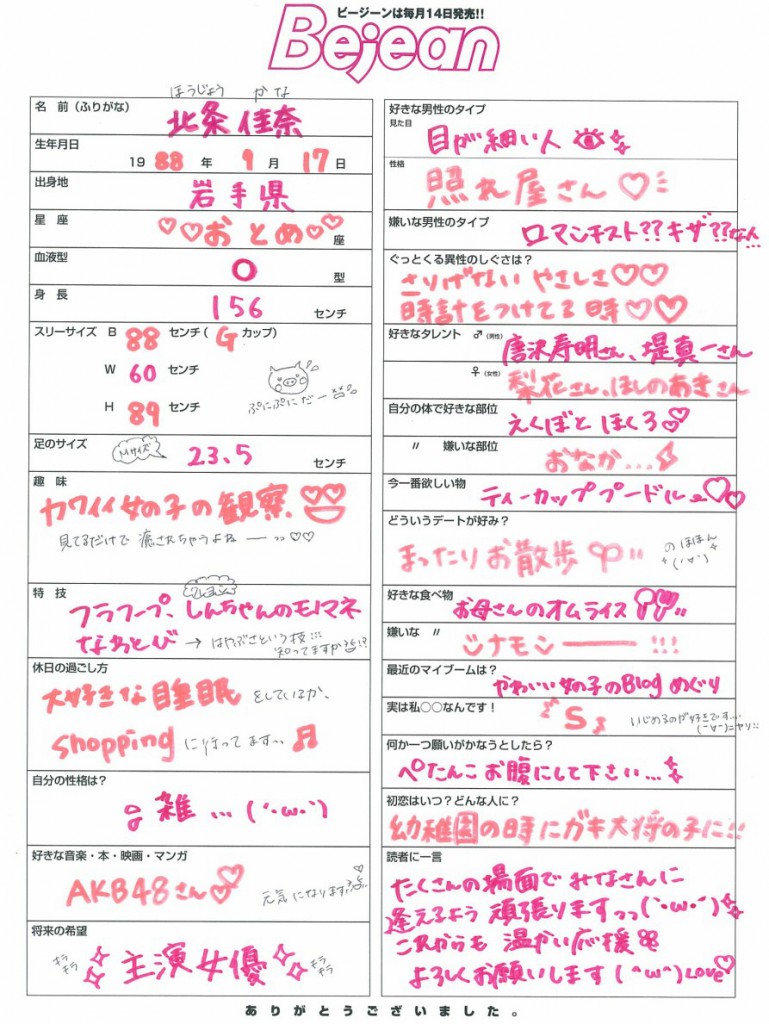 ビージーンは毎月14日発売!!
Bejean
ほうじょう かな
名 前（ふりがな）
北条 佳奈
生年月日
19 88 年 9 月 17 日
出身地
岩手県
星 座
♡♡おとめ♡♡ 座
血液型
O 型
身 長
156 センチ
スリーサイズ B 88 センチ( G カップ)
W 60 センチ
H 89 センチ
ぷにぷにだー
足のサイズ
Mサイズ
23.5 センチ
趣 味
カワイイ女の子の観察
見てるだけで 癒されちゃうよねーーっ♡♡
特 技
クレヨン
フラフープ、しんちゃんのモノマネ
なわとび → はやぶさという技!!!
知ってますか!?
休日の過ごし方
大好きな睡眠 をしているか、
shopping に行ってますっ♫
自分の性格は？
雑 … (´・ω・`)
好きな音楽・本・映画・マンガ
AKB48さん♡
元気になります
将来の希望
キラキラ 主演女優 キラキラ
好きな男性のタイプ
見た目
目が細い人
性格
照れ屋さん♡
嫌いな男性のタイプ
ロマンチスト??キザ??な人…
ぐっとくる異性のしぐさは？
さりげない やさしさ♡♡
時計をつけてる時♡♡
好きなタレント ♂（男性）
唐沢寿明さん、堤真一さん
♀（女性）
梨花さん、ほしのあきさん
自分の体で好きな部位
えくぼと ほくろ
〃 嫌いな部位
おなか…
今一番欲しい物
ティーカッププードル
どういうデートが好み？
まったりお散歩
のほほん
(´∀`)
好きな食べ物
お母さんのオムライス
嫌いな 〃
シナモンーーー!!!
最近のマイブームは？
かわいい女の子のBlogめぐり
実は私○○なんです！
S
いじめるのが好きです…
(´∀`)ニヤリ
何か一つ願いがかなうとしたら？
ぺたんこお腹にして下さい…
初恋はいつ？どんな人に？
幼稚園の時にガキ大将の子に!!
読者に一言
たくさんの場面でみなさんに
逢えるよう 頑張りますっっ(´・ω・`)
これからも 温かい応援
よろしくお願いします (^ω^)LOVE♡
ありがとうございました。